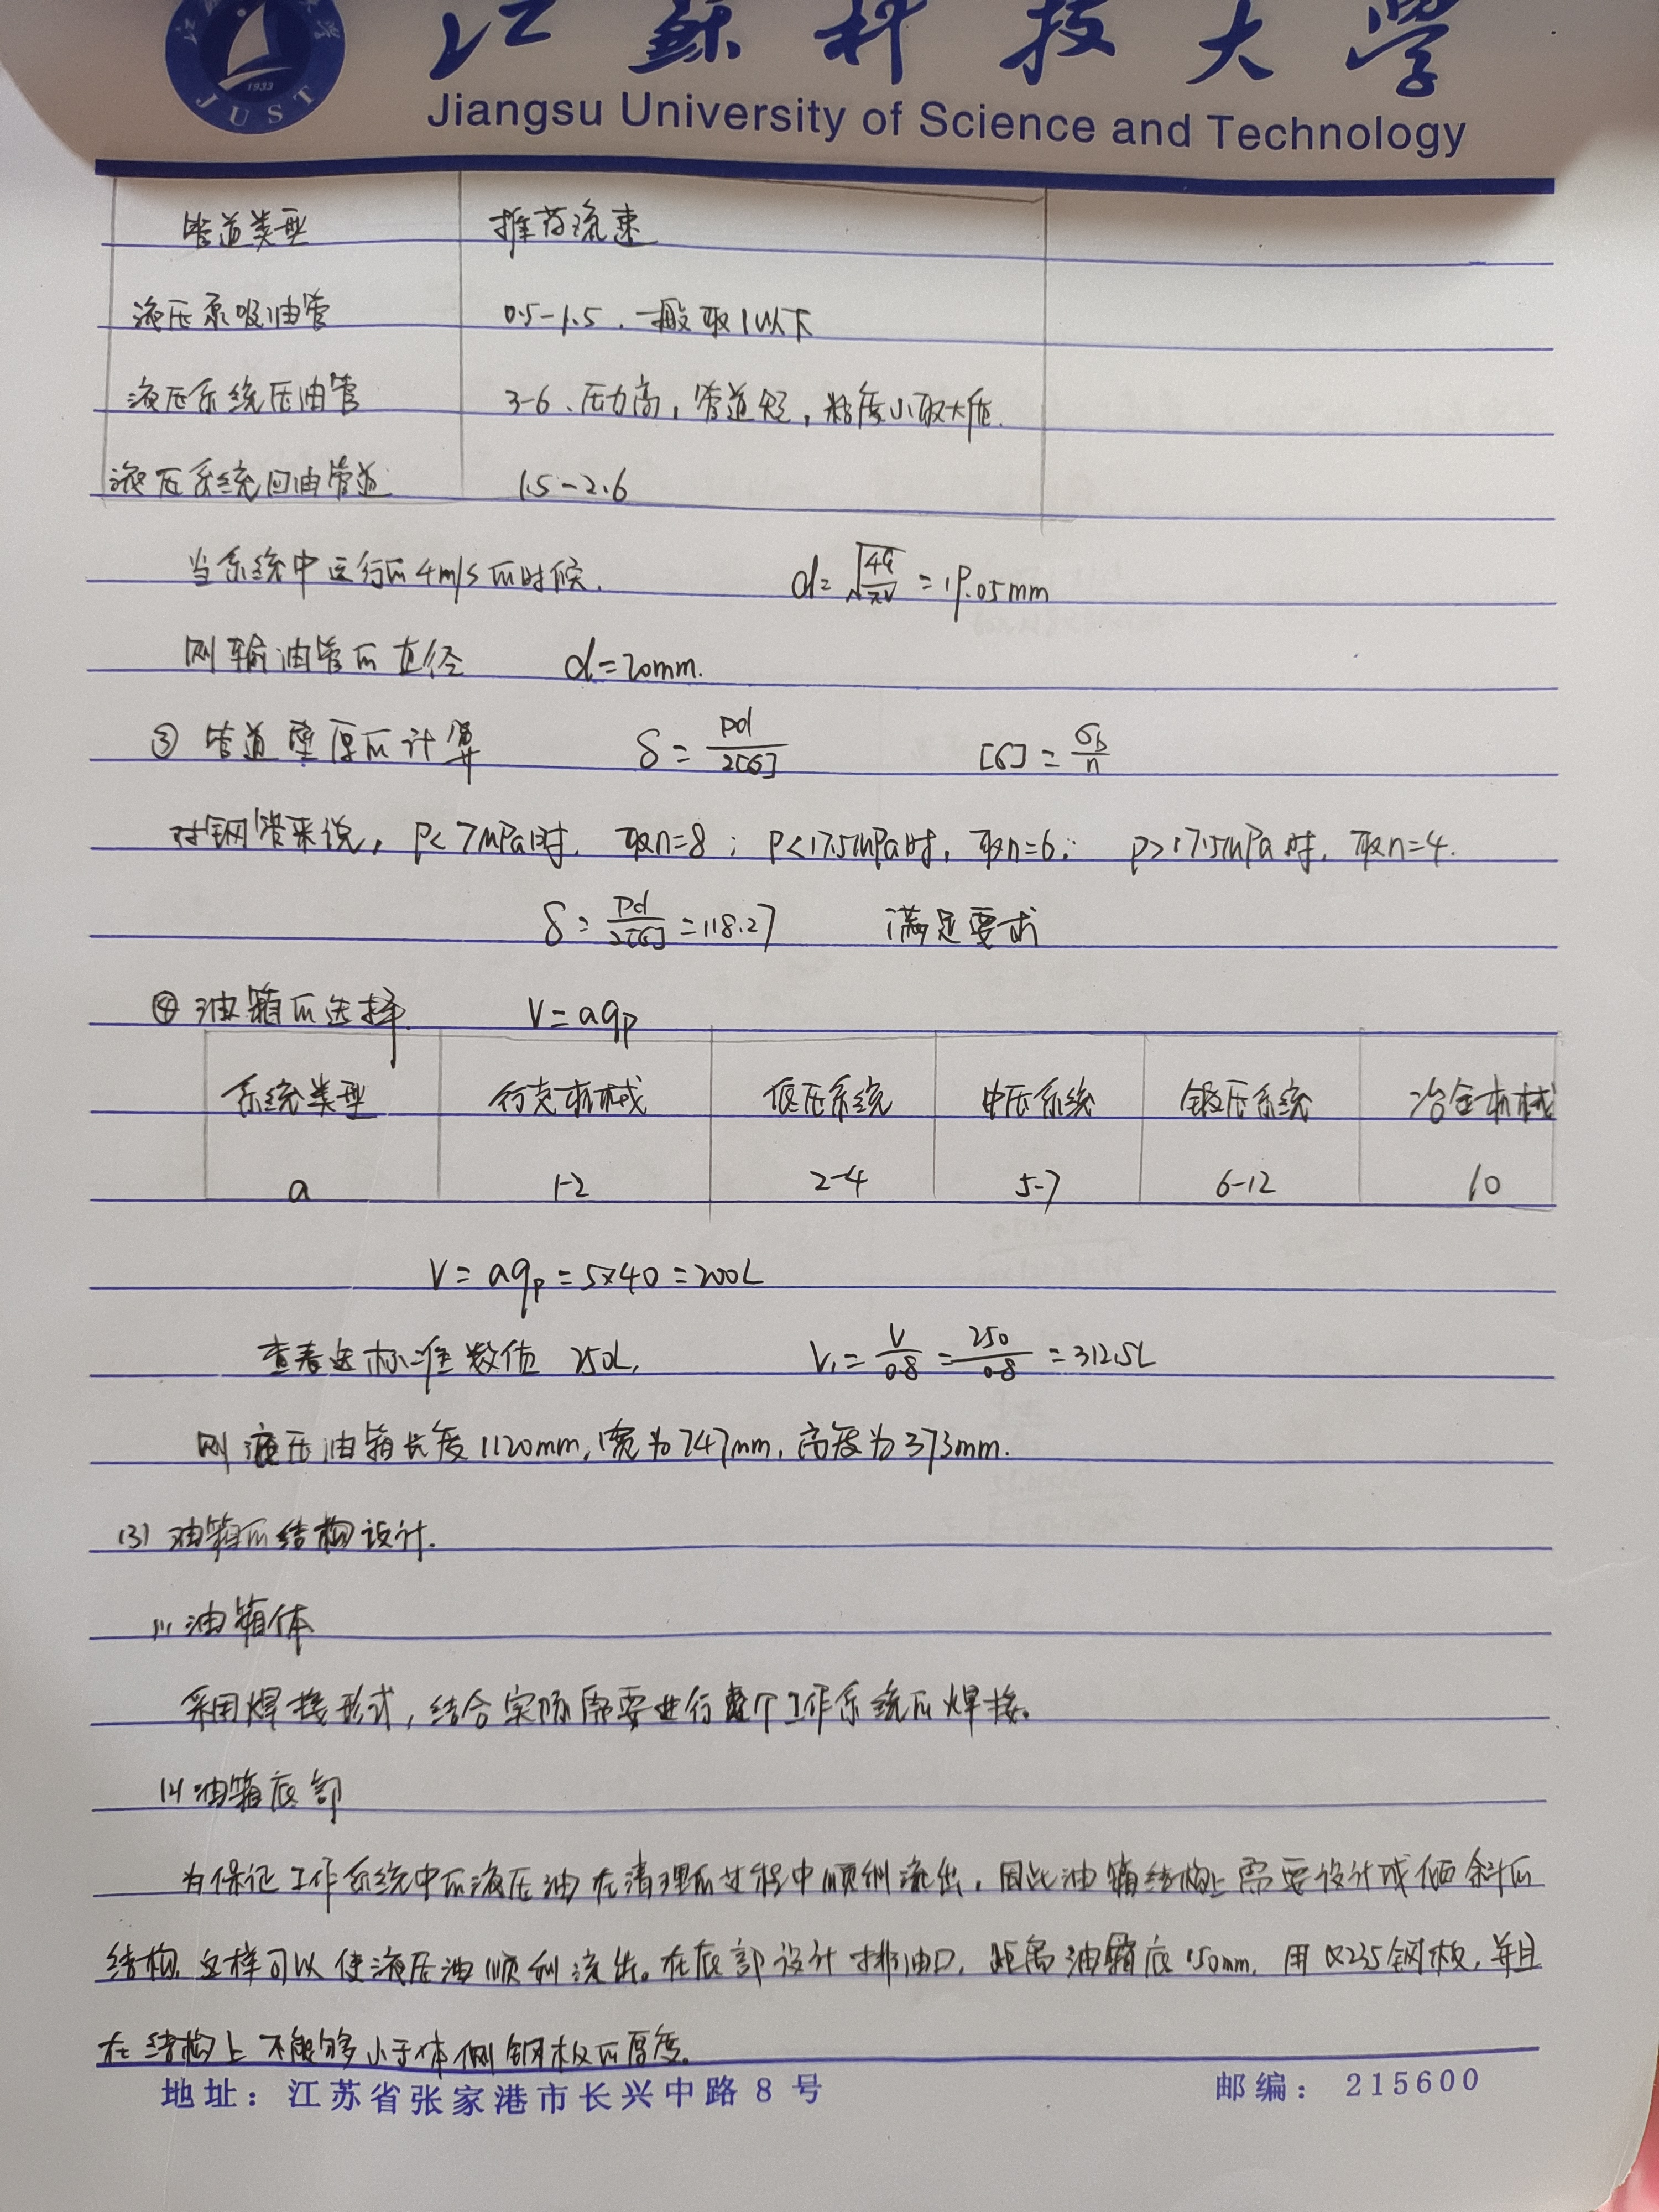 江苏科技大学
1933
JUST
Jiangsu University of Science and Technology
管道类型 推荐流速
液压泵吸油管 0.5-1.5.一般取1以下
液压系统压油管 3-6、压力高,管道短,粘度小取大值.
液压系统回油管道 1.5-2.6
当系统中运行的4m/s的时候. d=√(4q/πv)=19.05mm
则输油管的直径 d=20mm.
③ 管道壁厚的计算 δ=pd/2[σ] [σ]=σb/n
对钢管来说,P<7MPa时,取n=8;P<17.5MPa时,取n=6; P>17.5MPa时,取n=4.
δ=pd/2[σ]=118.27 满足要求
④ 油箱的选择. V=aqp
系统类型 行走机械 低压系统 中压系统 锻压系统 冶金机械
a 1-2 2-4 5-7 6-12 10
V=aqp=5×40=200L
查表选标准数值 250L, V₁=V/0.8=250/0.8=312.5L
则液压油箱长度1120mm,宽为747mm,高度为373mm.
(3) 油箱的结构设计.
(1) 油箱体
采用焊接形式,结合实际需要进行整个工作系统的焊接。
(2) 油箱底部
为保证工作系统中的液压油在清理的过程中顺利流出,因此油箱结构上需要设计成倾斜的
结构,这样可以使液压油顺利流出。在底部设计排油口,距离油箱底150mm,用Q235钢板,并且
在结构上不能够小于体侧钢板的厚度。
地址:江苏省张家港市长兴中路8号 邮编:215600